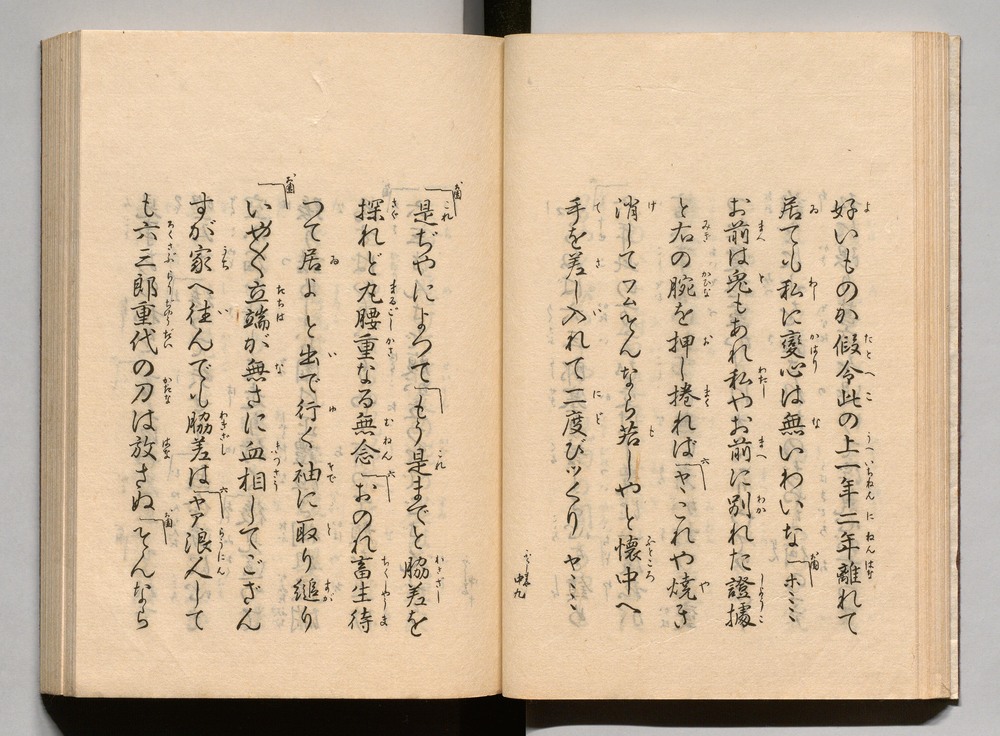 好いものか假令此の上一年二年離れて
居ても私に變心は無いわいな「ホミミ
お前は兎もあれ私やお前に別れた證據
と右の腕を押し捲れば「ヤヽこれや燒き
消してムヽそんなら若しやと懷中へ
手を差し入れて二度びツくりヤヽこ
是ぢやによつて「もう是までと脇差を
探れど丸腰重なる無念「おのれ畜生待
つて居よと出で行く袖に取り縋り
「いや〱立端が無さに血相してござん
すが家へ往んでも脇差は「ヤア浪人して
も六三郎重代の刀は放さぬ「そんなら